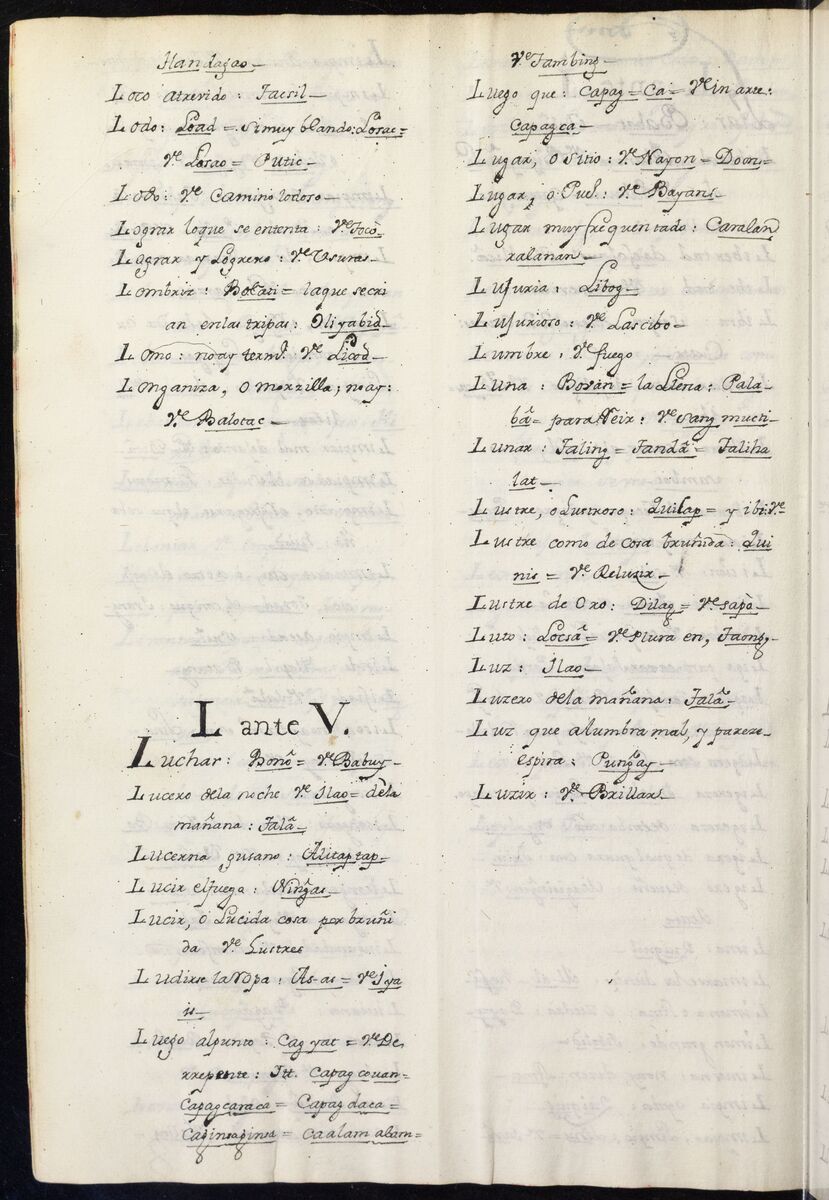 Handagao_
Loco atrevido: Tacsil_
Lodo: Load = si muy blando: Losac=
Vᵉ Losao = Putic_
Lodo: Vᵉ Camino lodoso_
Lograr loque se ententa: Vᵉ Tocò_
Lograr y Logrero: Vᵉ Usuras_
Lombriz: Bolati = laque secri
an enlas tripas: Oliyabid_
Lomo: no ay termᵒ. Vᵉ Licod_
Longaniza, o morzilla; no ay:
Vᵉ Balotac_
L ante V.
Luchar: Bonõ = Vᵉ Babuy_
Lucero dela noche Vᵉ Ilao = dela
mañana: Talã_
Lucerna, gusano: Alitaptap_
Lucir elfuego: Ning̃as_
Lucir, o Lucida cosa por bruñi
da Vᵉ Lustres
Ludirse la ropa: As-as = Vᵉ Iya
is_
Luego alpunto: Cag yat = Vᵉ De
rrepente: Itt. Capag couan=
Capagcaraca = Capag daca=
Caginsaginsa = Caalam alam=
Vᵉ Tambing_
Luego que: Capag = Ca = Vᵉ in arte:
Capagca_
Lugar, o sitio: Vᵉ Nayon = Doon=
Lugar, o Puel: Vᵉ Bayans_
Lugar muy frequentado: Caralan
ralanan_
Lujuria: Libog_
Lujurioso: Vᵉ Lascibo_
Lumbre, Vᵉ fuego
Luna: Bovan = la Llena: Pala-
bã = para Reir: Vᵉ sang mucti_
Lunar: Taling = Tandã = Taliha
lat_
Lustre, o Lustroso: Quilap = y ibi: Vᵉ
Lustre como de cosa bruñida: Qui
nis = Vᵉ Reluzir_
Lustre de Oro: Dilag = Vᵉ sapò_
Luto: Locsã = Vᵉ Plura en, Taong_
Luz: Ilao_
Luzero dela mañana: Talã_
Luz que alumbra mal, y pareze
espira: Pung̃ay_
Luzir: Vᵉ Brillar_